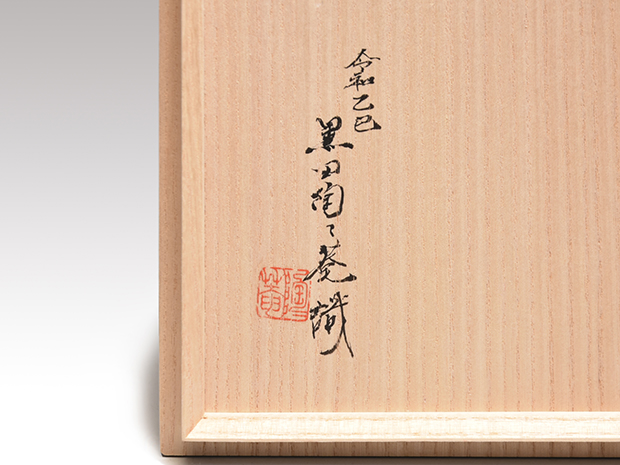 令和乙巳
黒田陶々菴識